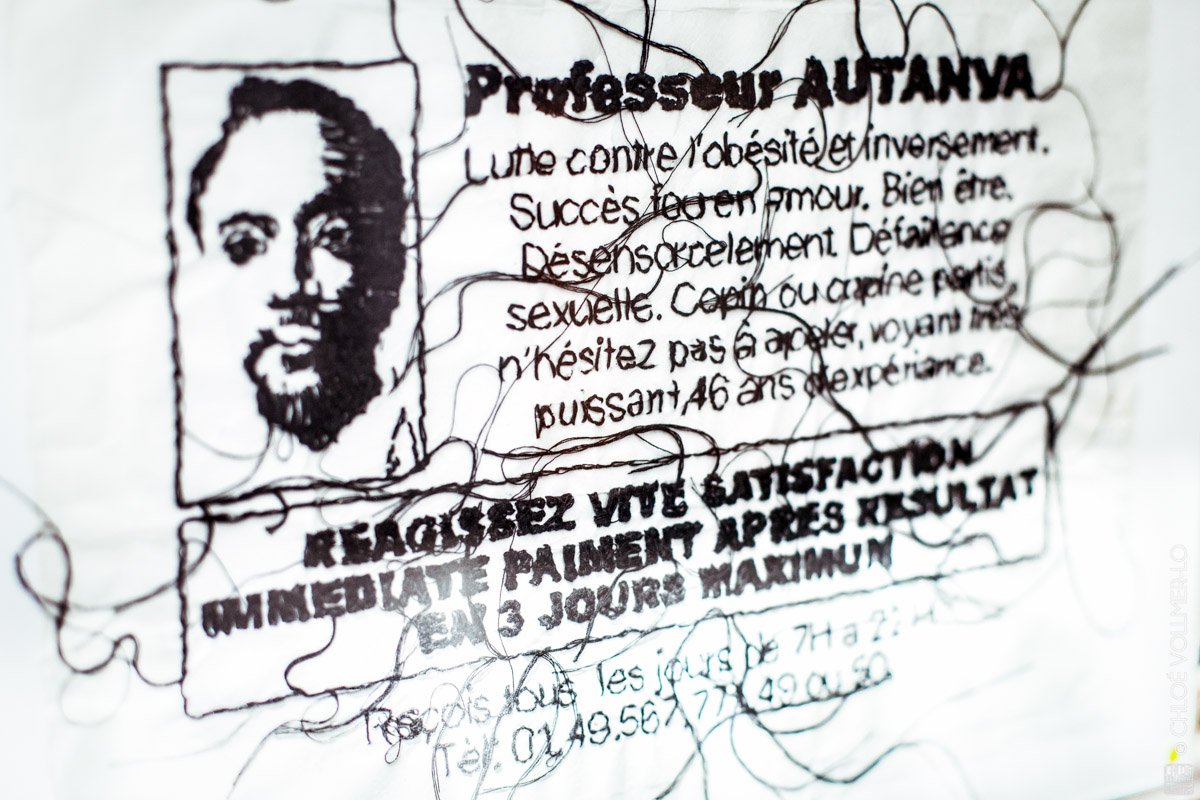 Professeur AUTANVA
Lutte contre l'obésité et inversement.
Succès fou en amour. Bien être.
Désensorcelement. Défaillence
sexuelle. Copin ou copine partis,
n'hésitez pas à apeler, voyant très
puissant, 46 ans d'expériance.
REAGISSEZ VITE SATISFACTION
IMMEDIATE PAIMENT APRES RESULTAT
EN 3 JOURS MAXIMUM
Reçois tous les jours de 7H à 22 H
Tèl. 01.49.567.777.49 ou 50.
© CHLOÉ VOLLMER-LO